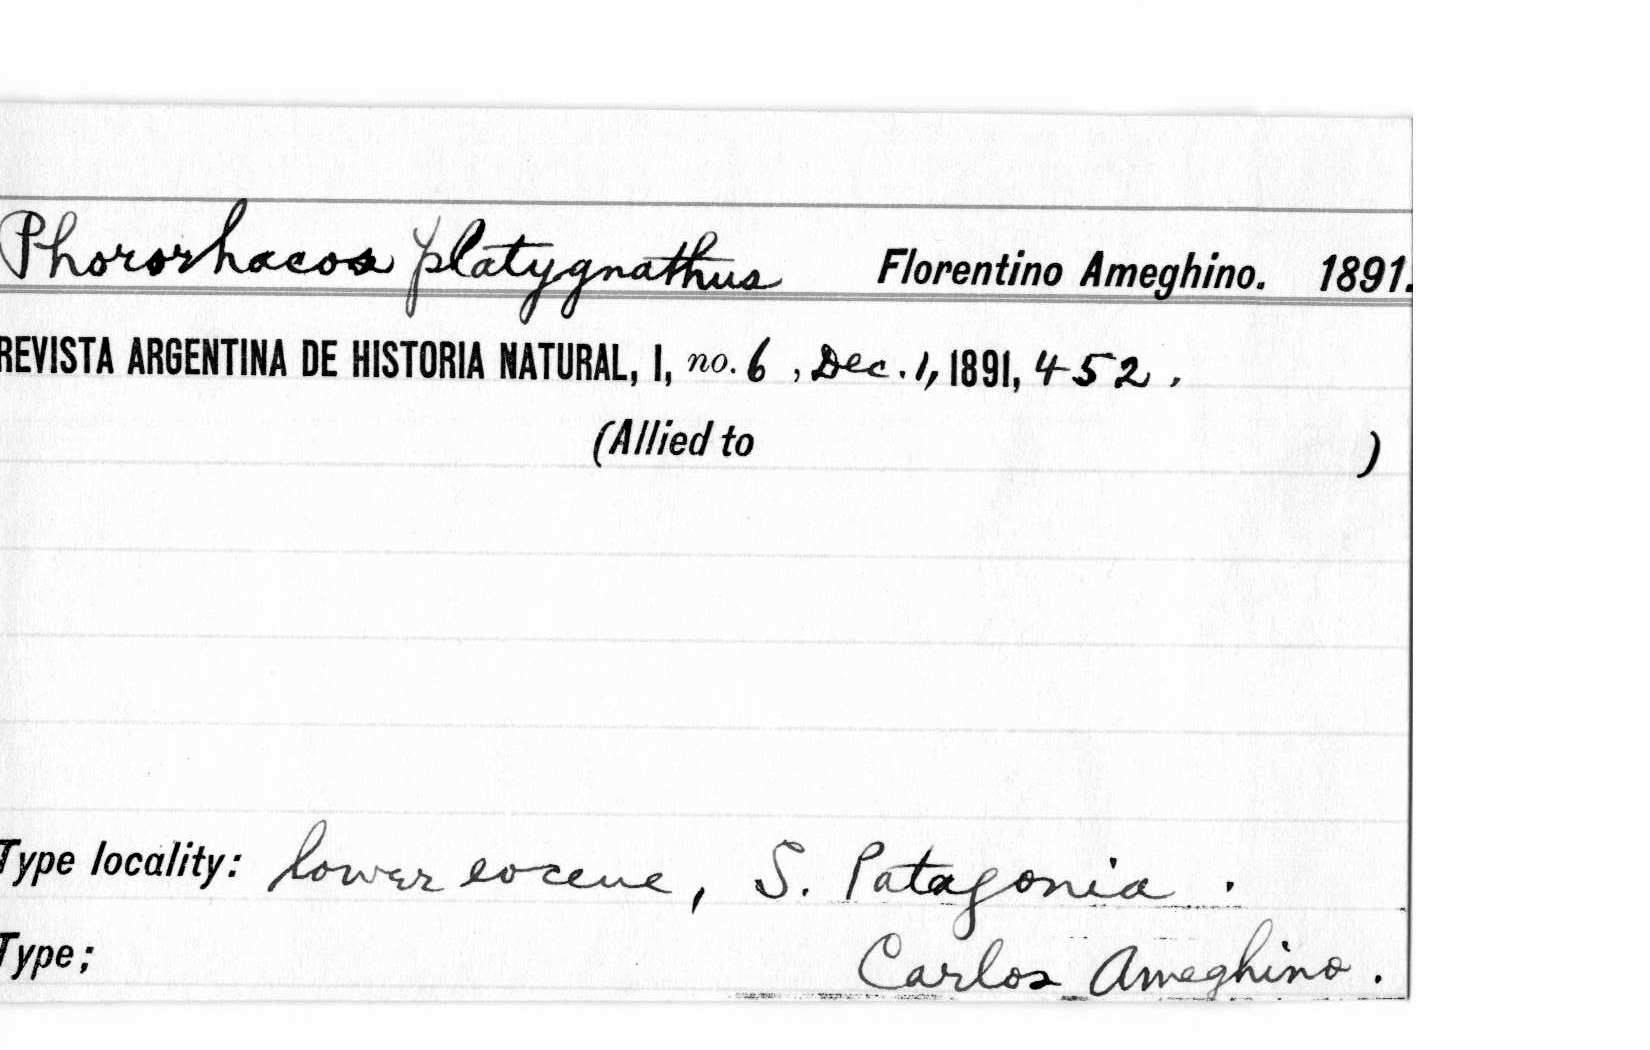 Phororhacos platygnathus Florentino Ameghino. 1891.
REVISTA ARGENTINA DE HISTORIA NATURAL, I, no. 6, Dec. 1, 1891, 452.
(Allied to )
Type locality: lower eocene, S. Patagonia.
Type; Carlos Ameghino.